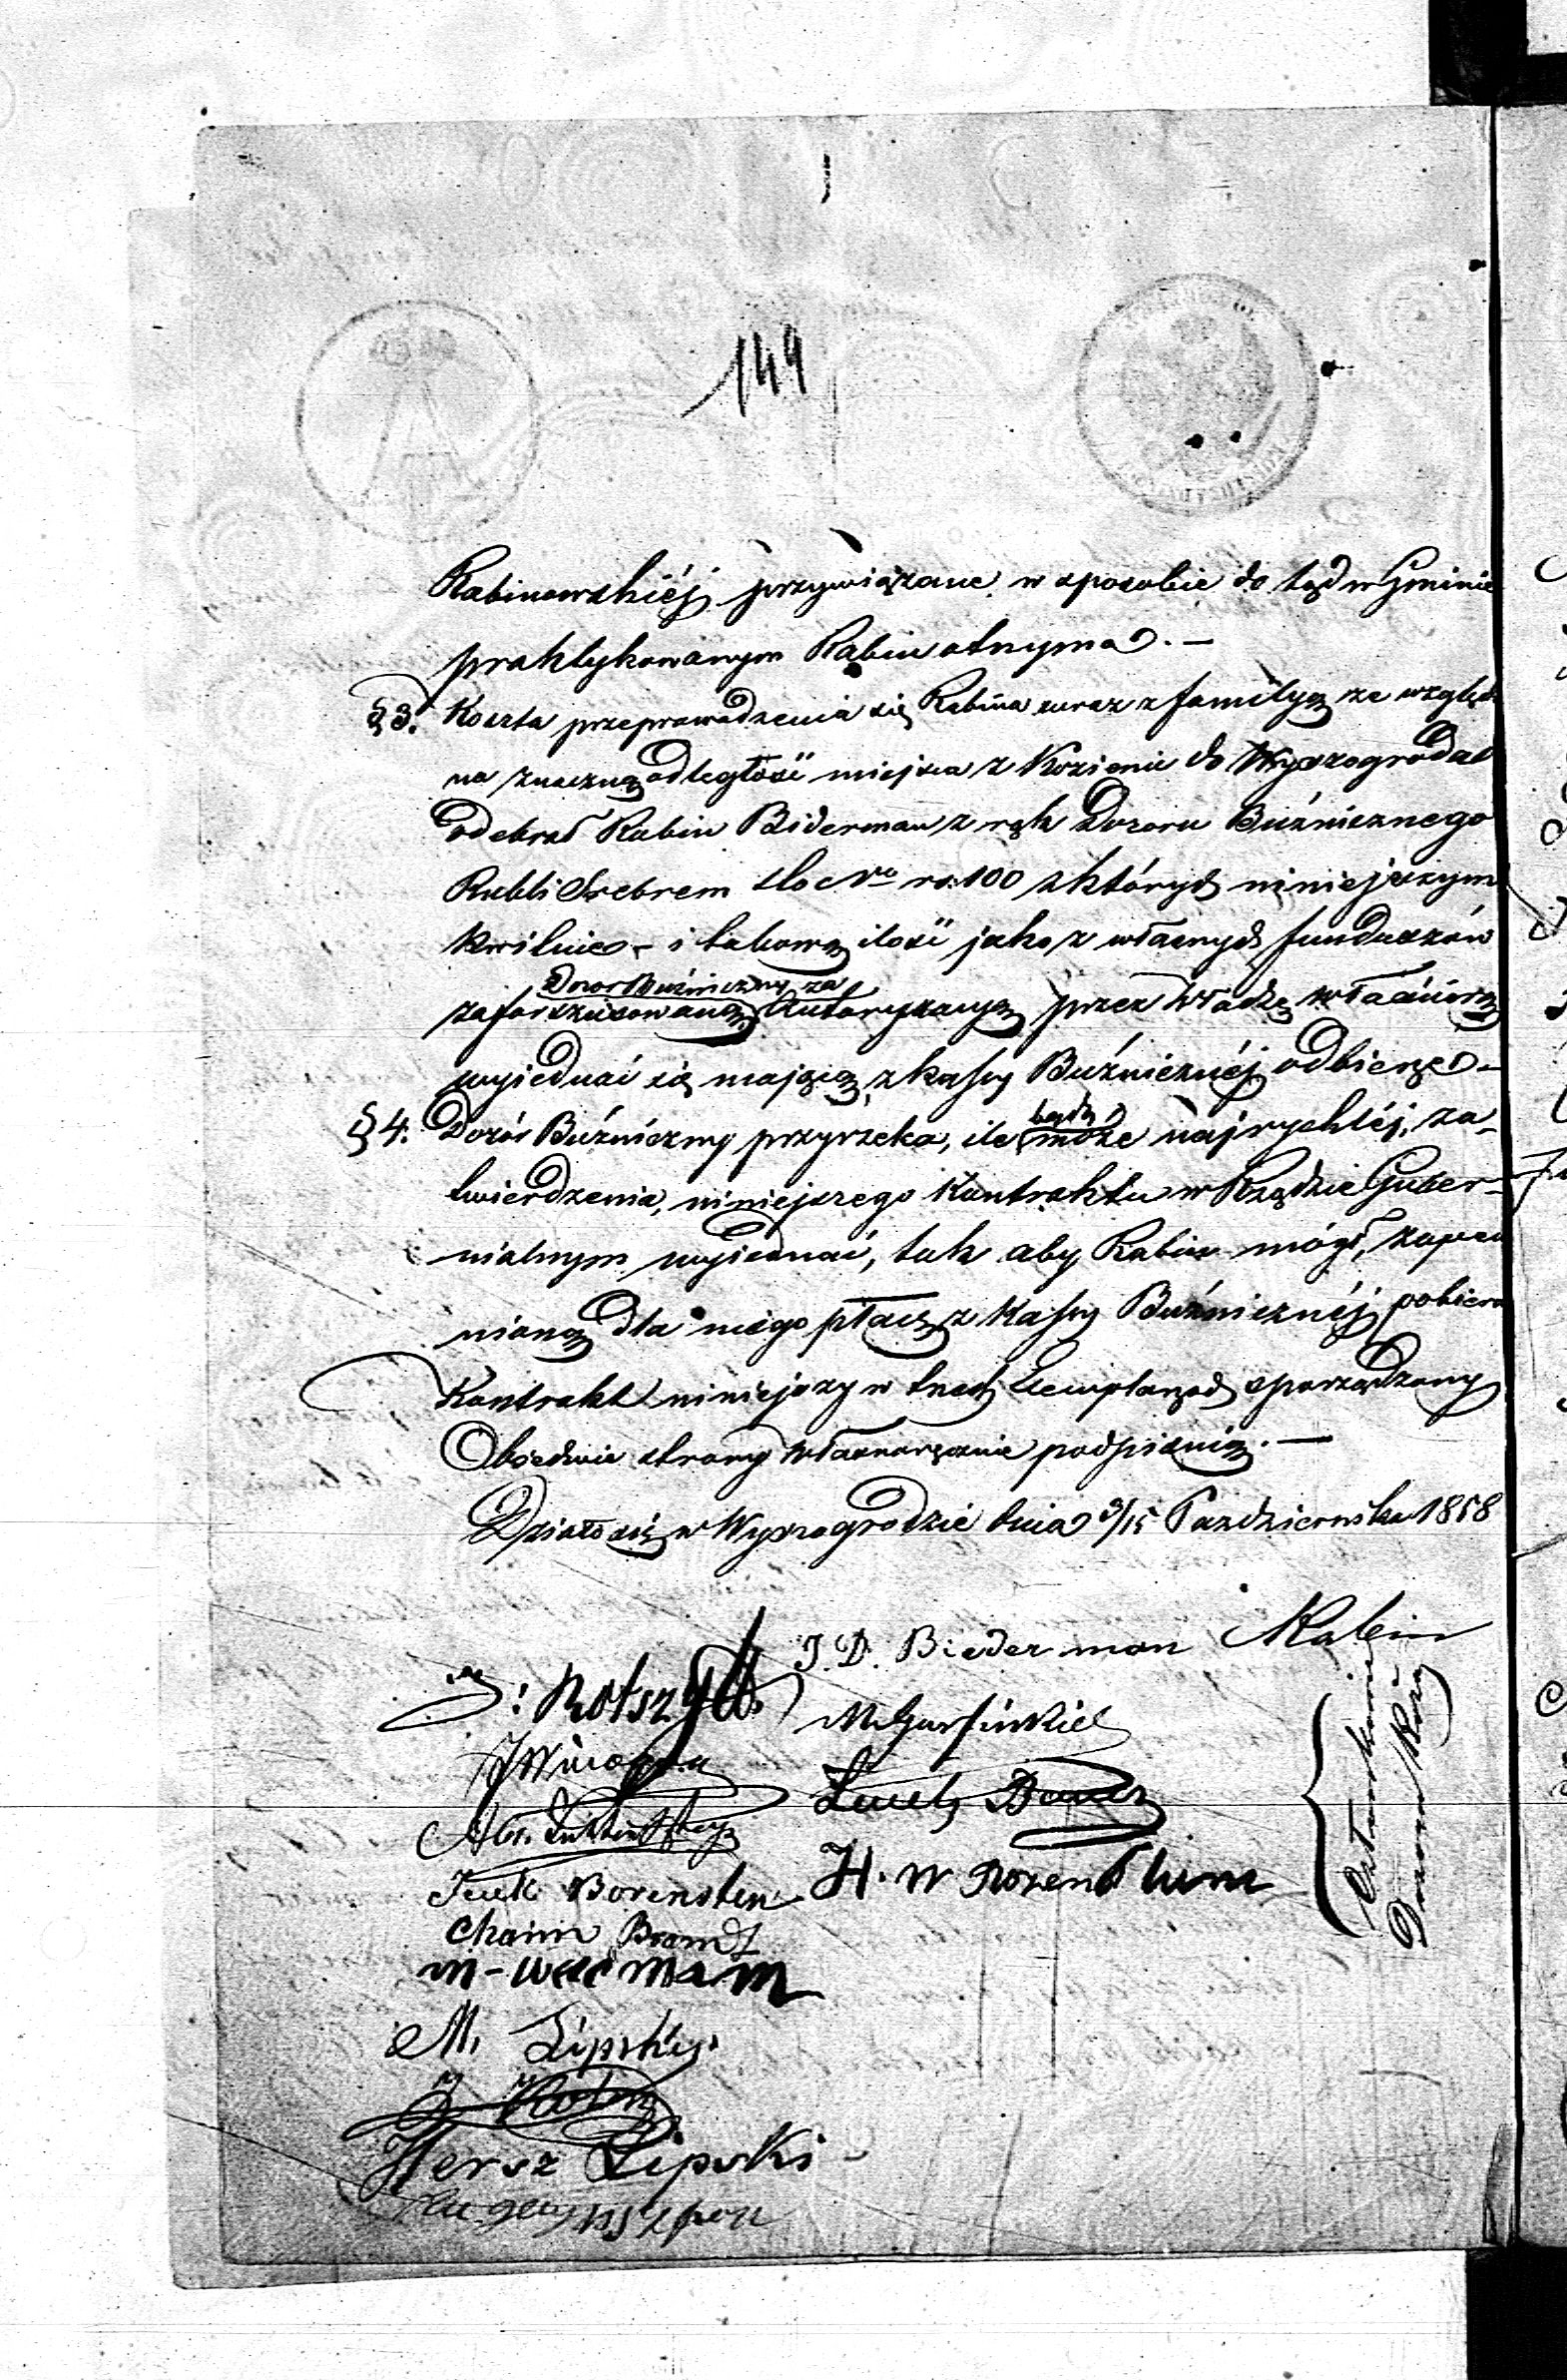 144
Rabinowskiéj przywiązane, w sposobie do tąd w Gminie
praktykowanym Rabin otrzyma. —
§ 3. Koszta przeprowadzenia się Rabina wraz z familyą ze względu
na znaczną odległość miejsca z Kozienic do Wyszogroda
odebrał Rabin Biderman z rąk Dozoru Buźnicznego
Rubli Srebrem sto No rs. 100 z których niniejszym
kwituie – i takową ilość jako z własnych funduszów
Dozor Buźniczny za
zaforszusowaną Autoryzacyą przez Władzę właściwą
wyjednać się mającą, z kassy Buźnicznéj odbierze –
§ 4. Dozór Buźniczny przyrzeka, ile będzie może najrychléj, za-
twierdzenia, niniejszego Kontraktu w Rządzie Guber-
nialnym wyjednać, tak aby Rabin mógł, zapew
nioną dla niego płacę z Kassy Buźnicznéj pobierać
Kontrakt niniejszy w trzech Exemplarzach sporządzony
Obiedwie strony własnoręcznie podpisują. —
Działo się w Wyszogrodzie dnia 3/15 Października 1858
J. D. Biederman Rabin
Rotszyld
M Garfinkiel
H. W Rozenblum
Członkowie
Dozoru Bóżn
Icek Borensten
Chaim Brand
M. Lipskij
Hersz Lipski